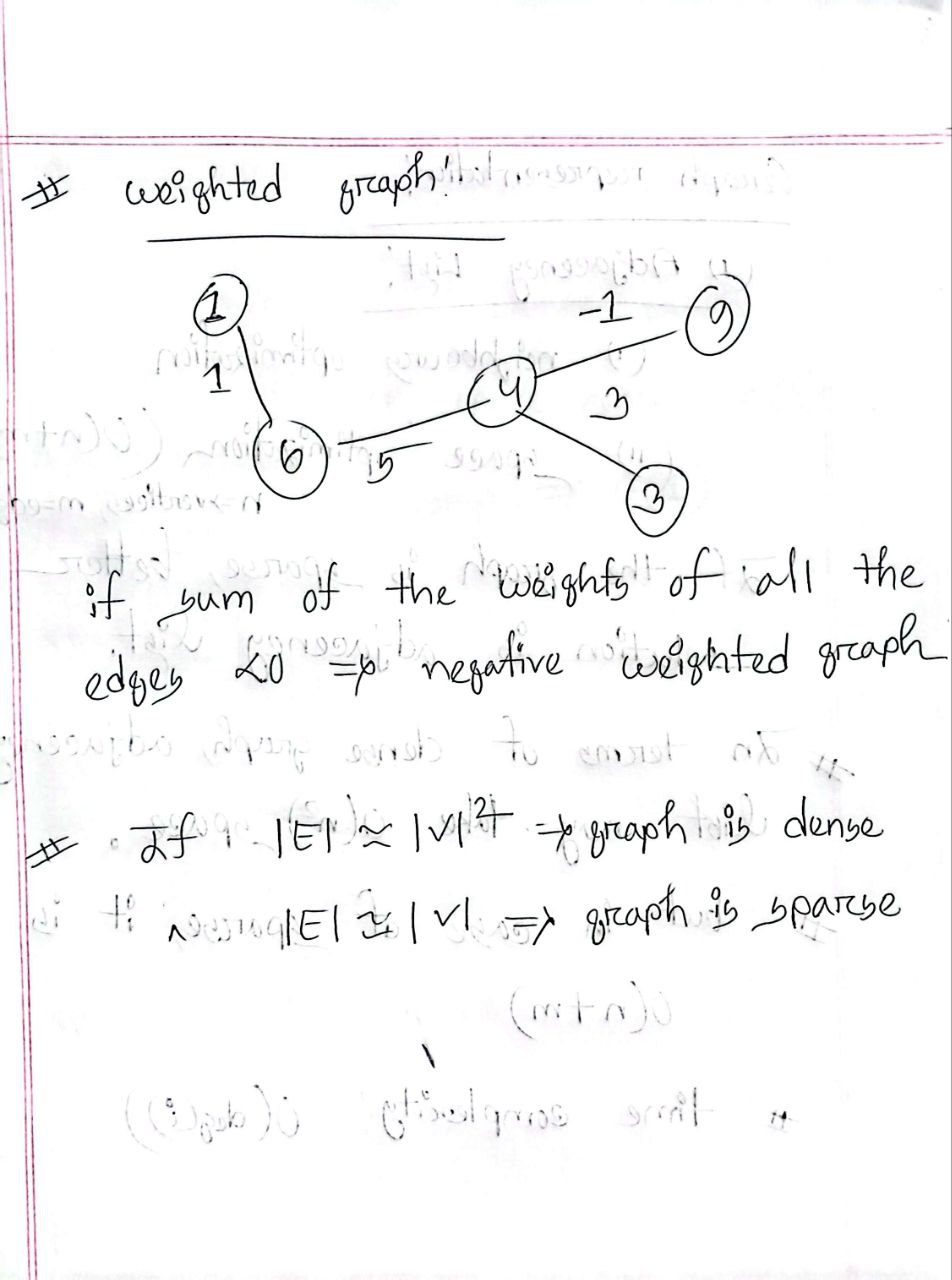 # weighted graph:
1
-1
9
1
4
3
6
5
3
if sum of the weights of all the
edges <0 => negative weighted graph
# If |E| ≃ |V|² => graph is dense
" |E| ≃ |V| => graph is sparse